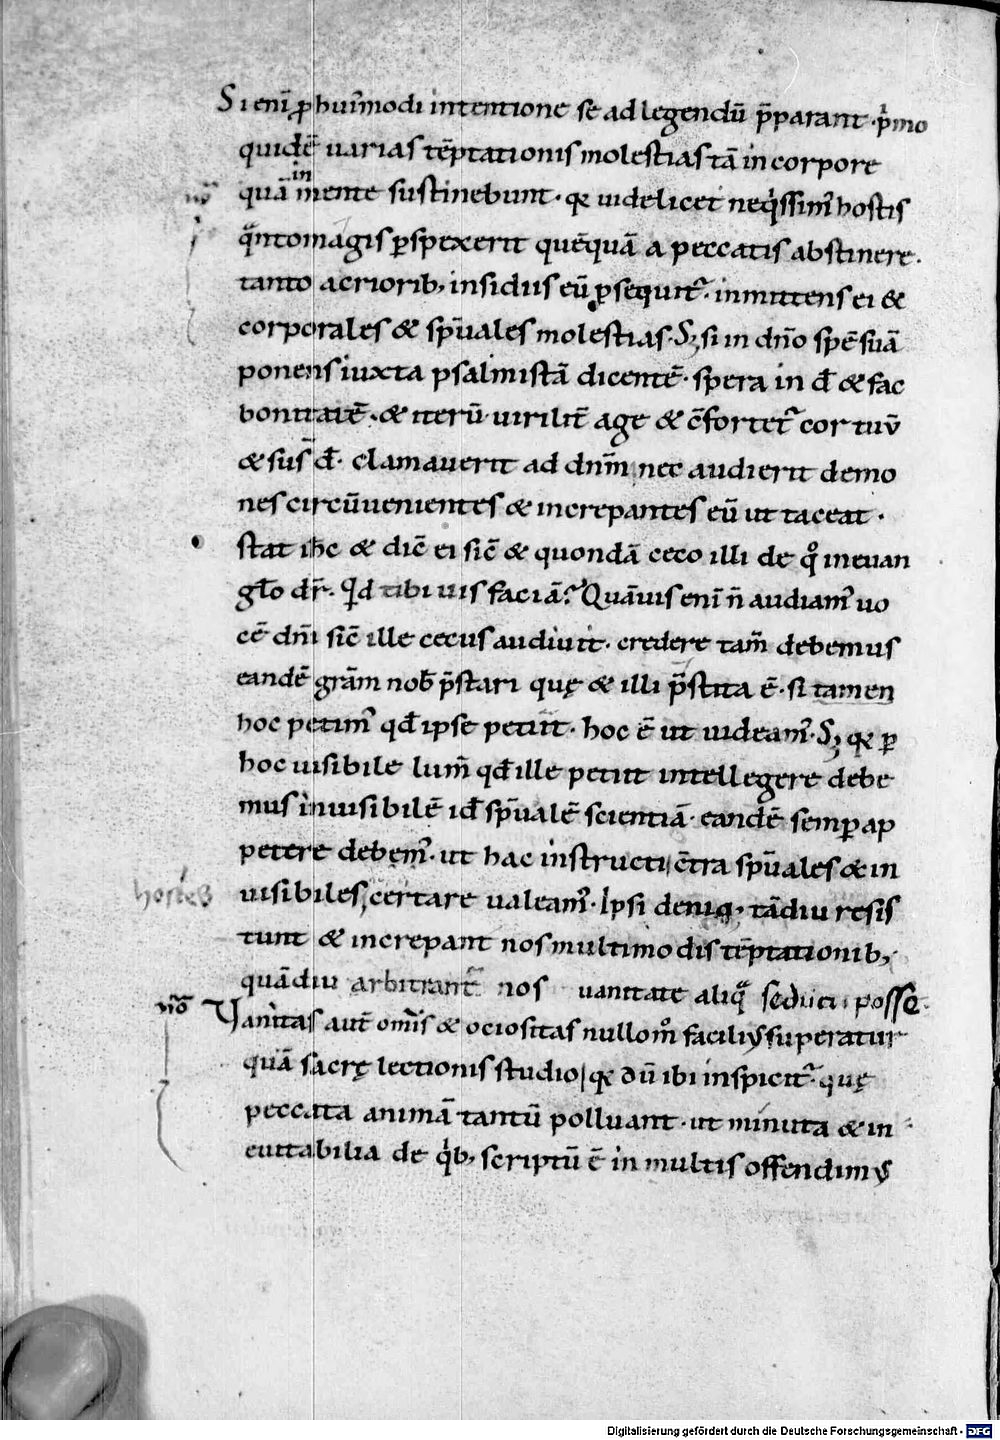 Si eni̅ ꝓ hui᷑modi intentione se ad legendu̅ p̅parant · p̍mo
quide̅ uarias te̅ptationis molestias ta̅ in corpore
qua̅ in mente sustinebunt · qꝛ uidelicet neq̍ssim᷑ hostis
no̅
qͣnto magis ꝑspexerit que̅qua̅ a peccatis abstinere ·
tanto acriorib; insidiis eu̅ ꝑsequit᷑ · inmittens ei &
corporales & sp̅uales molestias · Sꝫ si in dn̅o spe̅ sua̅
ponens iuxta psalmista̅ dicente̅ · spera in d̅ & fac
bonitate̅ · & iteru̅ uirilit̅ age & c̅fortet᷑ cor tuu̅
& sus̅ d̅ · clamauerit ad dn̅m nec audierit demo
nes circu̅uenientes & increpantes eu̅ ut taceat ·
stat ih̅c & dic̅ ei sic̅ & quonda̅ ceco illi de qͦ in euan
gl̅o dr̅ · Qͥd tibi uis facia̅? Qua̅uis eni̅ n̅ audiam᷑ uo
ce̅ dn̅i sic̅ ille cecus audiuit · credere tam̅ debemus
eande̅ gra̅m nob̅ p̅stari quę & illi p̅stita e̅ · si tamen
hoc petim᷑ qd̅ ipse petiit · hoc e̅ ut uideam᷑ · Sꝫ qꝛ ꝑ
hoc uisibile lum̅ qd̅ ille petiit intellegere debe
mus inuisibile̅ id̅ sp̅uale̅ scientia̅ · eande̅ semꝑ ap
petere debem᷑ · ut hac instructi c̅tra sp̅uales & in
uisibiles, certare ualeam᷑ · Ipsi deniq; ta̅diu resis
hostes
tunt & increpant nos multimodis te̅ptationib;
qua̅diu arbitrant᷑ nos uanitate aliqͣ seduci posse ·
no̅
Vanitas aut̅ omis̅ & ociositas nullom̊ facilius superatur
qua̅ sacrę lectionis studio qꝛ du̅ ibi inspicit᷑ · quę
peccata anima̅ tantu̅ polluant · ut minuta & in
euitabilia de qͥb; scriptu̅ e̅ in multis offendimus
Digitalisierung gefördert durch die Deutsche Forschungsgemeinschaft - DFG